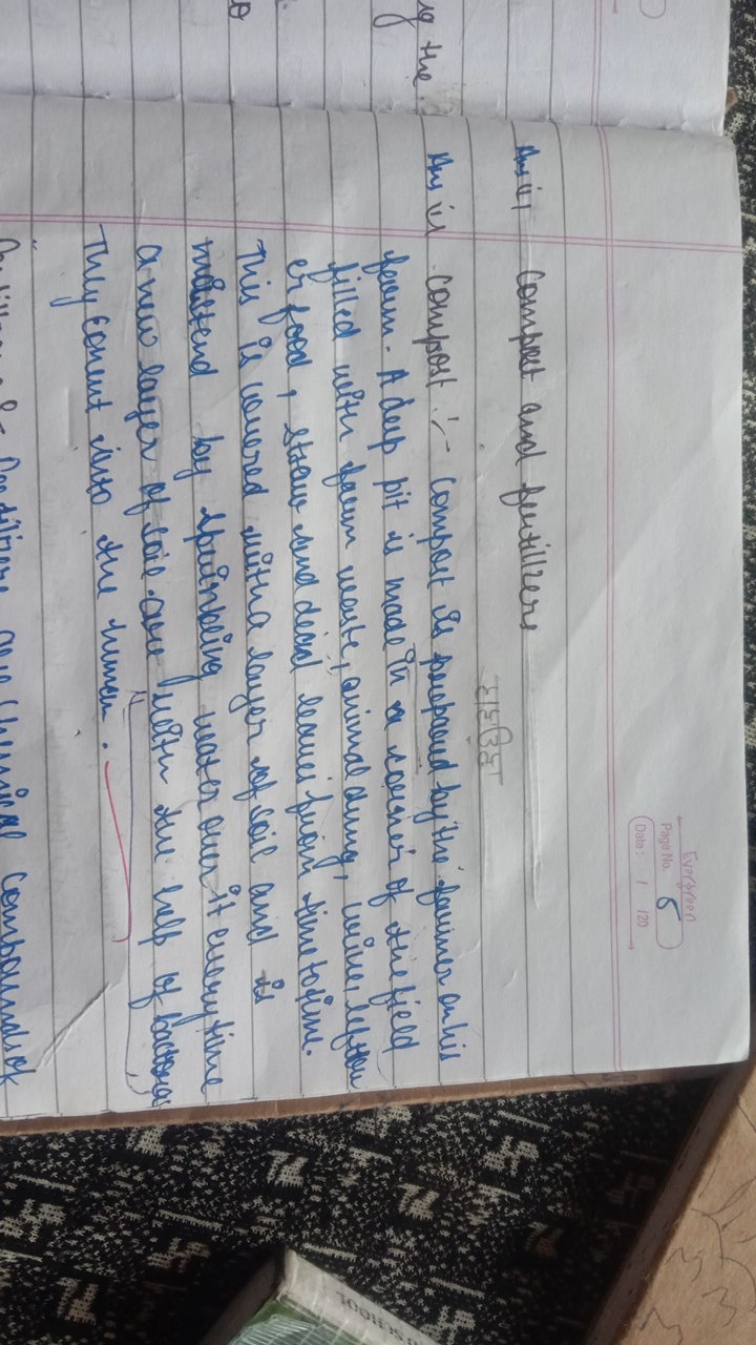 Evergreen
Page No. 6
Date: / /20
Ans i) Compost and fertillzers
Ans i) compost :- compost is prepared by the farmer on his
farm. A deep pit is made in a corner of the field
filled with farm waste, animal dung, urine, leftov
er food, straw and dead leaves from time to time.
This is covered with a layer of soil and is
moistend by sprinkling water over it every time
a new layer of soil are with the help of bacteria
They convert into the humas.
Fertilizers are chemical compounds of
ig the
SCHOOL